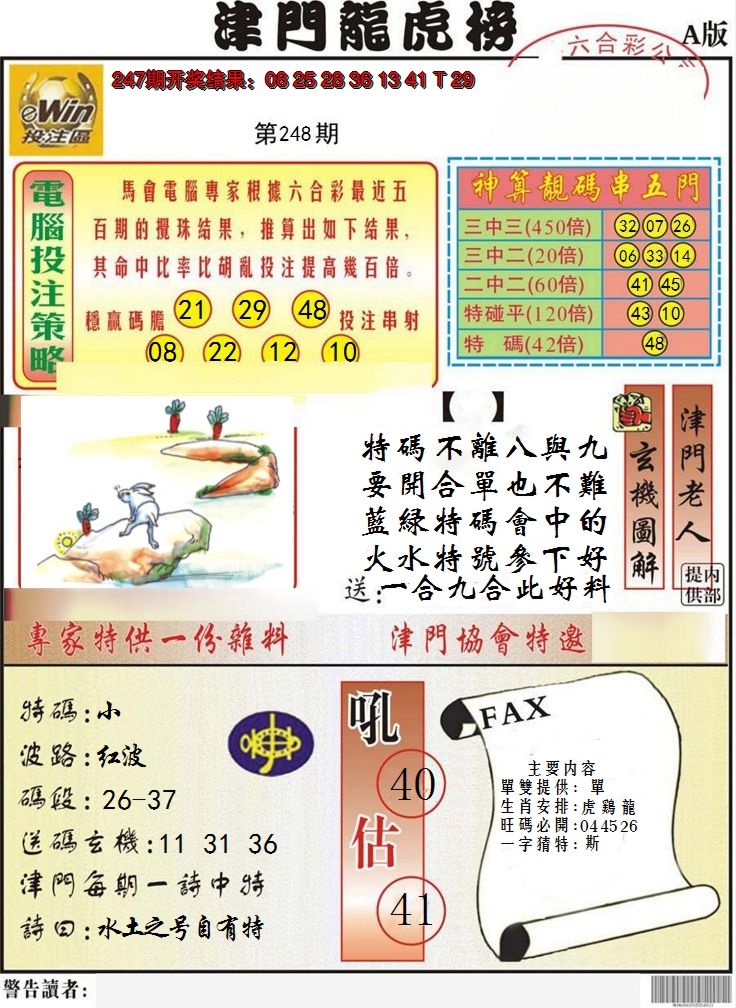 津門龍虎榜
六合彩公
A版
247期开奖结果：08 25 28 36 13 41 T 29
eWin
投注區
第248期
電腦投注策略
馬會電腦專家根據六合彩最近五
百期的攪珠结果，推算出如下结果，
其命中比率比胡亂投注提高幾百倍。
穩贏碼膽 21 29 48 投注串射
08 22 12 10
神算靚碼串五門
三中三(450倍) 32 07 26
三中二(20倍) 06 33 14
二中二(60倍) 41 45
特碰平(120倍) 43 10
特 碼(42倍) 48
【 】
特碼不離八與九
要開合單也不難
藍綠特碼會中的
火水特號參下好
送：一合九合此好料
玄機圖解
津門老人
提供
内部
專家特供一份雜料
津門協會特邀
特碼：小
波路：红波
碼段：26-37
送碼玄機：11 31 36
津門每期一詩中特
詩曰：水土之号自有特
吼
40
估
41
FAX
主要内容
單雙提供：單
生肖安排：虎鷄龍
旺碼必開：044526
一字猜特：斯
警告讀者：